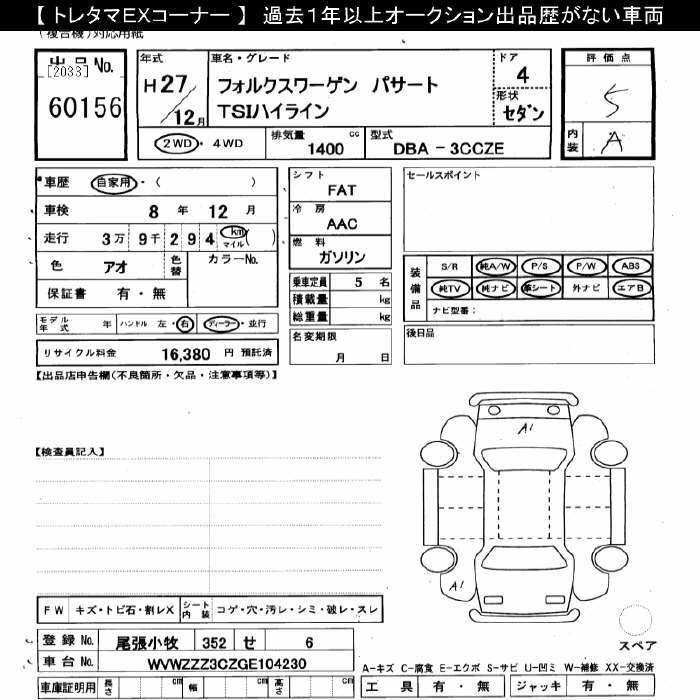 【 トレタマEXコーナー 】 過去1年以上オークション出品歴がない車両
(複合機)対応用紙
出品 No.
[2033]
60156
年式
H 27 / 12 月
車名・グレード
フォルクスワーゲン パサート
TSIハイライン
ドア
4
形状
セダン
2WD・4WD
排気量 1400 cc
型式 DBA - 3CCZE
評価点
5
内装 A
車歴 自家用・( )
車検 8 年 12 月
走行 3万 9千 2 9 4 km マイル ( )
色 アオ 色替 カラーNo.
保証書 有・無
シフト
FAT
冷房
AAC
燃料
ガソリン
乗車定員 5 名
積載量 kg
総重量 kg
名変期限
月 日
セールスポイント
装備品
S/R 純A/W P/S P/W ABS
純TV 純ナビ 革シート 外ナビ エアB
ナビ型番:
後日品
モデル年式 年 ハンドル 左・右 ディーラー・並行
リサイクル料金 16,380 円 預託済
【出品店申告欄(不良箇所・欠品・注意事項等)】
【検査員記入】
A1
A1
スペア
FW キズ・トビ石・割レX シート内装 コゲ・穴・汚レ・シミ・破レ・スレ
登録 No. 尾張小牧 352 せ 6
車台 No. WVWZZZ3CZGE104230
車庫証明用 長さ cm 幅 cm 高さ cm
A-キズ C-腐食 E-エクボ S-サビ U-凹ミ W-補修 XX-交換済
工具 有・無 ジャッキ 有・無